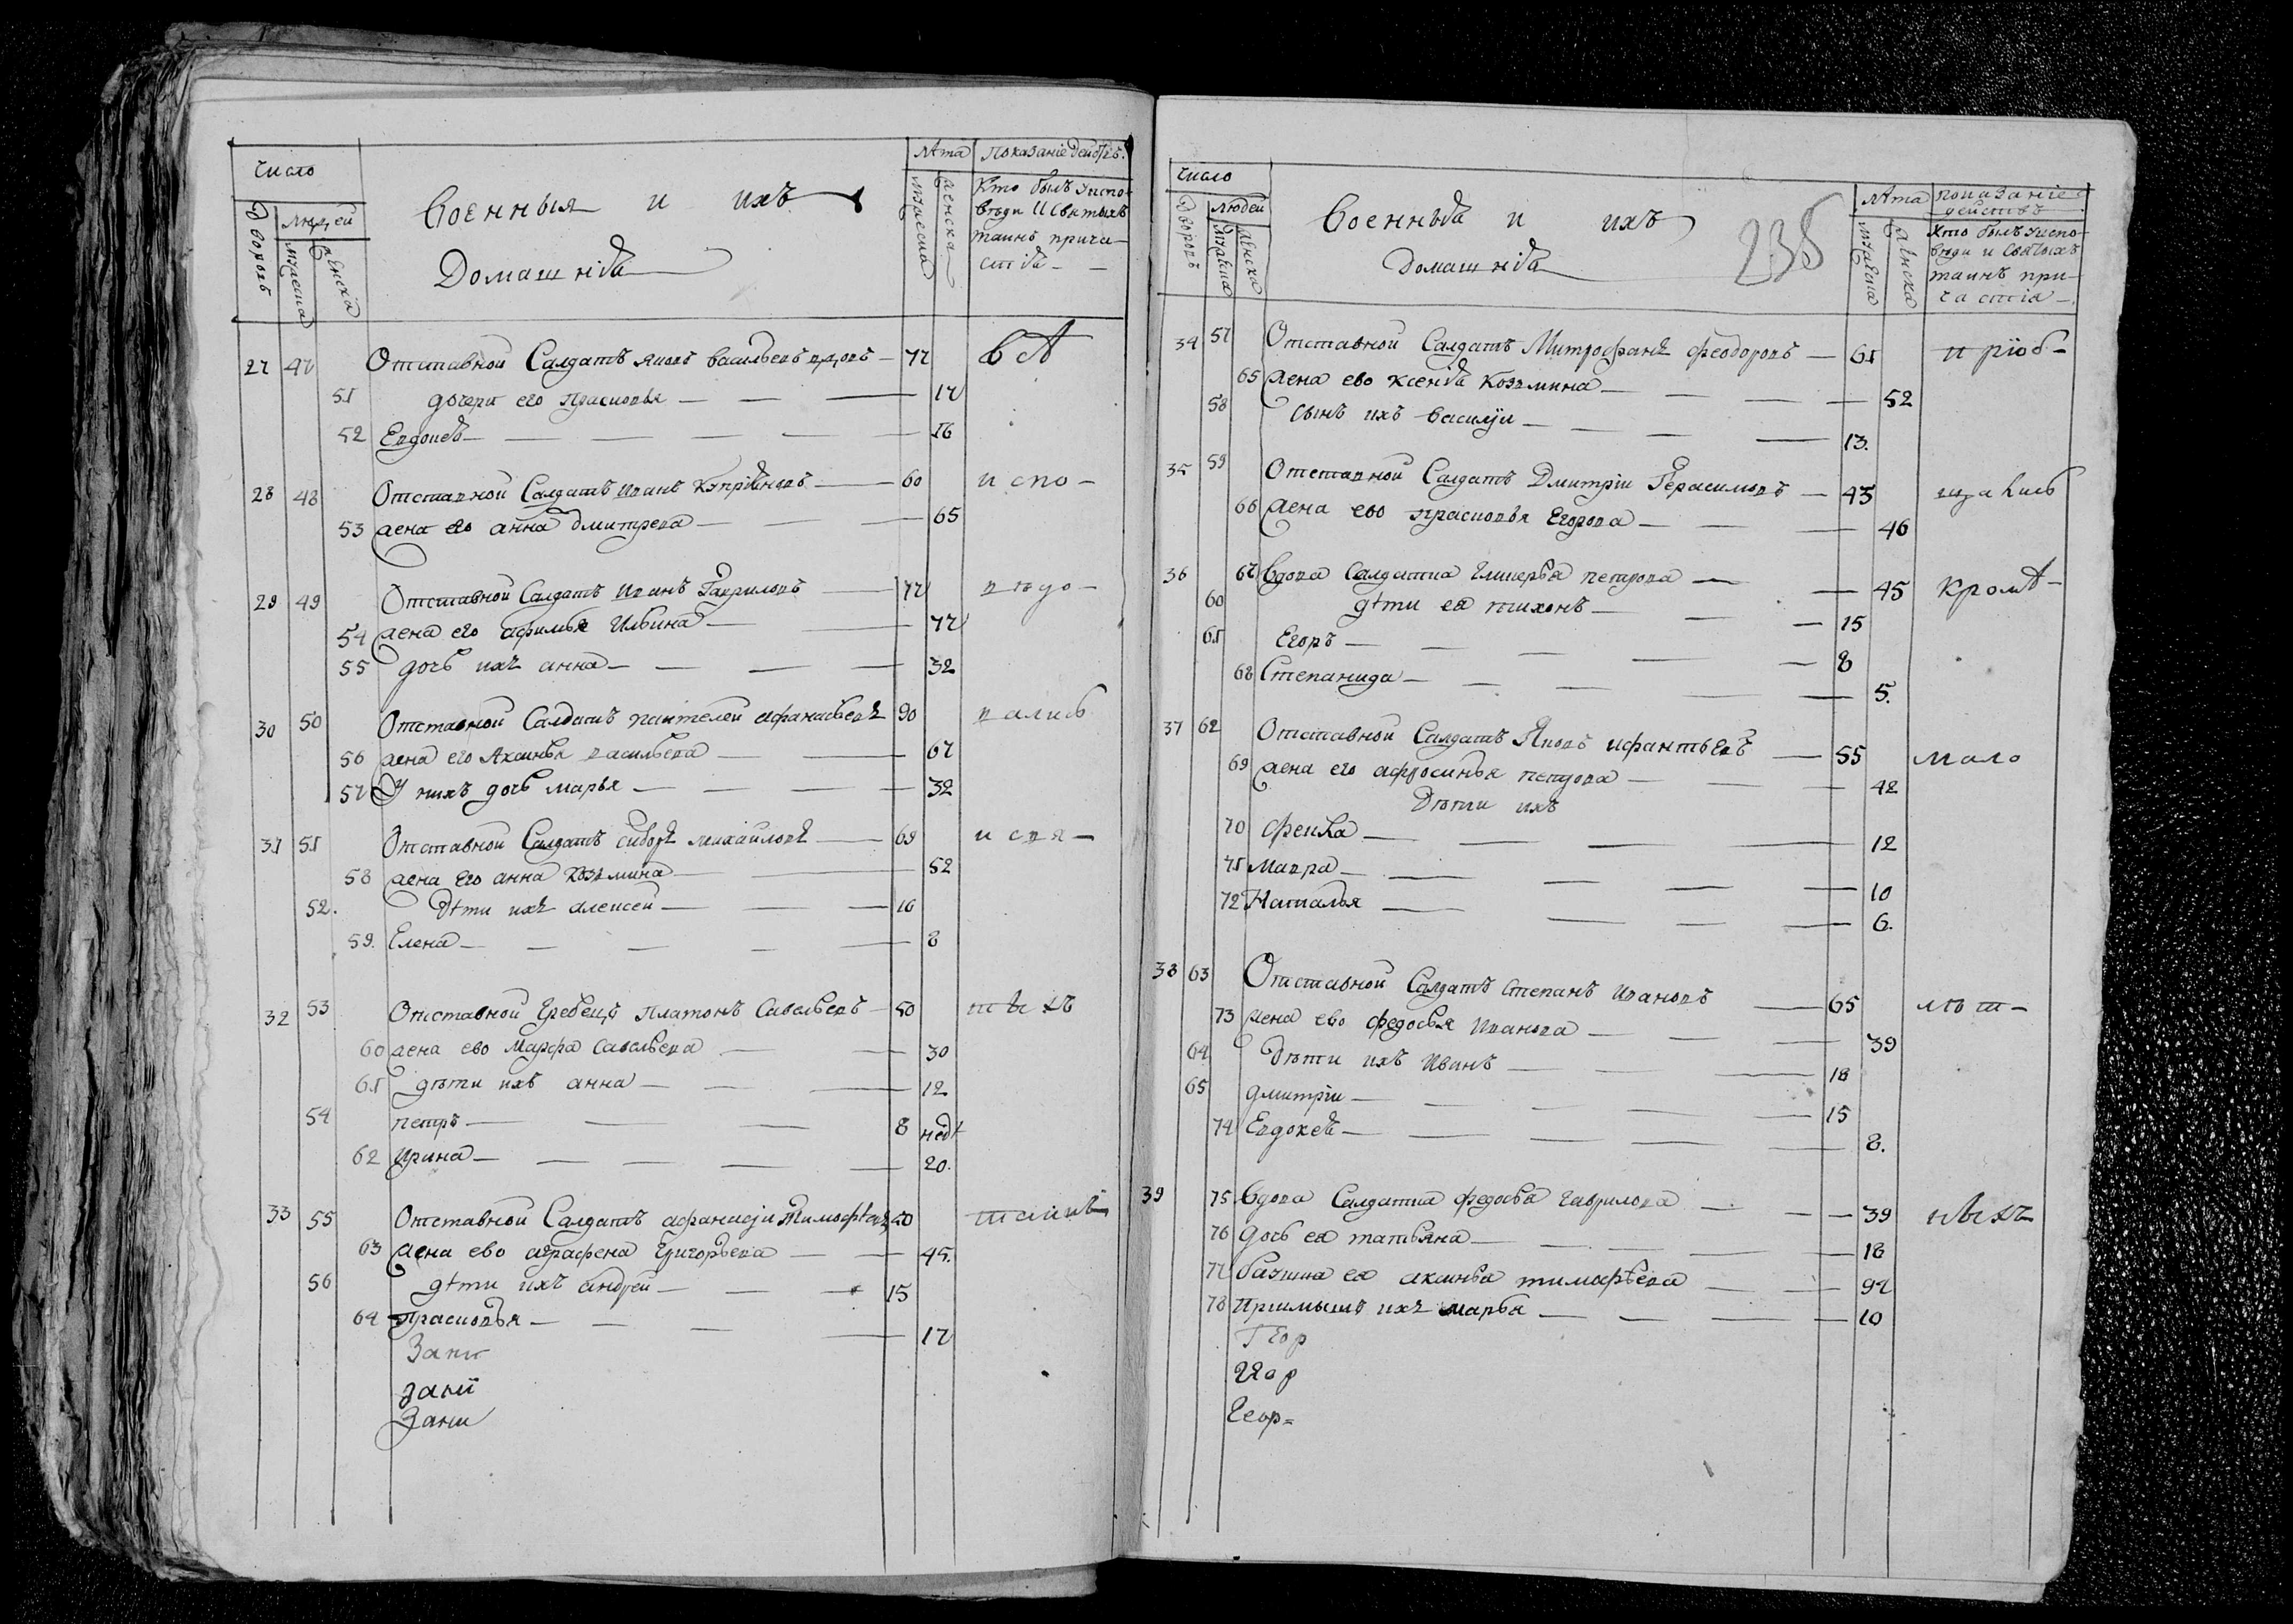 число
лѣта показаніе действъ.
дворовъ людей мужеска женска
Военныя и ихъ
Домашнія
мужеска женска
Кто былъ у испо-
веди и святыхъ
таинъ прича-
стія
27 47 Отставной Салдатъ яковъ васильевъ вдовъ 77 вѣ
51 дочери его прасковья 17
52 Евдокея 16
28 48 Отставной Салдатъ иванъ 60 испо-
53 жена его анна дмитрева 65
29 49 Отставной Салдатъ иванъ Гавриловъ 77 ведо-
54 жена его афимья Ильина 77
55 дочь ихъ анна 32
30 50 Отставной Салдатъ пантелеи афанасьевъ 90 вались
56 жена его Аксинья васильева 67
57 У нихъ дочь марья 32
31 51 Отставной Салдатъ сидоръ михаиловъ 69 и свя-
58 жена его анна козмина 52
52. дѣти ихъ алексеи 16
59. Елена 8
32 53 Отставной Гребецъ платонъ Савельевъ 50 тыхъ
60 жена ево Марфа савельева 30
61 дѣти ихъ анна 12
54 петръ 8 недѣ
62 Ирина 20.
33 55 Отставной Салдатъ афанасіи Тимофѣевъ 50 таинъ
63 жена ево аграфена Григорьева 45.
56 дѣти ихъ андреи 15
64 прасковья 17
Зани
зани
Зани
число
лѣта показаніе
действъ
дворовъ людей мужеска женска
Военныя и ихъ 235
Домашнія
мужеска женска
Кто былъ у испо-
веди и святыхъ
таинъ при-
частія
34 57 Отставной Салдатъ Митрофанъ феодоровъ 61 и пріоб-
65 жена ево ксенія козмина 52
58 сынъ ихъ василіи 13.
35 59 Отставной Салдатъ Дмитріи Герасимовъ 43 щались
66 жена ево прасковья Егорова 46
36 67 Вдова салдатка гликерья петрова 45 кромѣ
60 дѣти ея тихонъ 15
61 Егоръ 8
68 Степанида 5.
37 62 Отставной Салдатъ Яковъ ифантьевъ 55 мало
69 жена его афросинья петрова 42
Дѣти ихъ
70 фекла 12
71 Мавра 10
72 Наталья 6.
38 63 Отставной Салдатъ степанъ ивановъ 65 лѣт-
73 жена ево федосья Иванова 39
64 Дѣти ихъ Иванъ 18
65 дмитріи 15
74 Евдокея 8.
39 75 Вдова Салдатка федосья гаврилова 39 ныхъ
76 дочь ея татьяна 18
77 бабушка ея аксинья тимофѣева 97
78 примышъ ихъ марья 10
Геор
Геор
Геор=